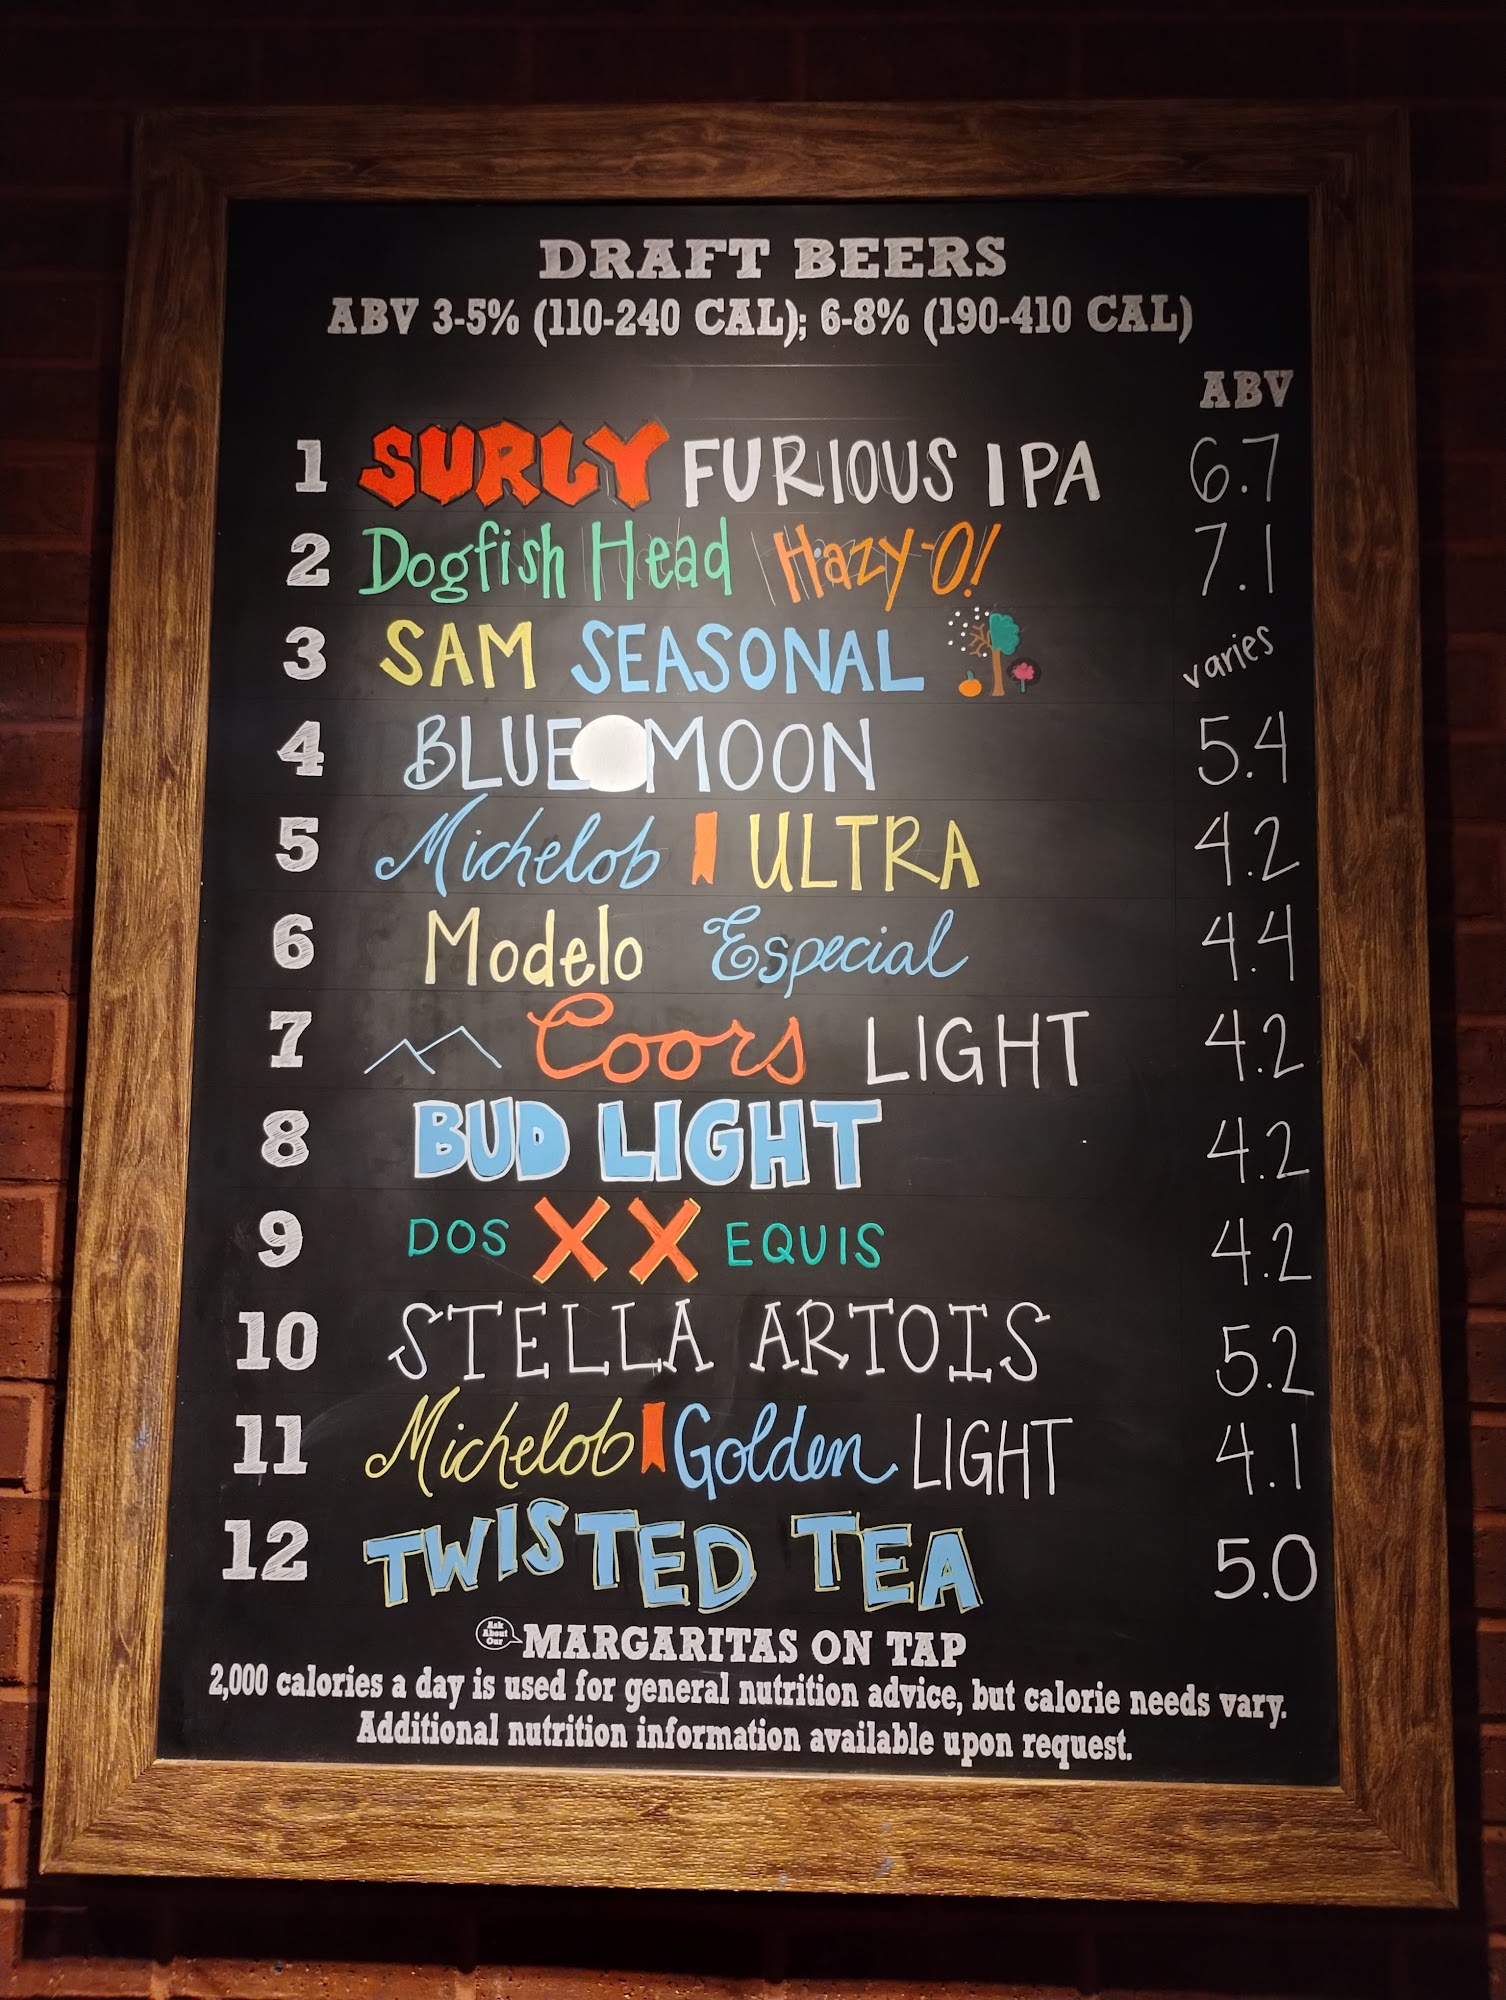 DRAFT BEERS
ABV 3-5% (110-240 CAL); 6-8% (190-410 CAL)
ABV
1 SURLY FURIOUS IPA 6.7
2 Dogfish Head Hazy-O! 7.1
3 SAM SEASONAL varies
4 BLUE MOON 5.4
5 Michelob ULTRA 4.2
6 Modelo Especial 4.4
7 Coors LIGHT 4.2
8 BUD LIGHT 4.2
9 DOS XX EQUIS 4.2
10 STELLA ARTOIS 5.2
11 Michelob Golden LIGHT 4.1
12 TWISTED TEA 5.0
Ask About Our MARGARITAS ON TAP
2,000 calories a day is used for general nutrition advice, but calorie needs vary.
Additional nutrition information available upon request.